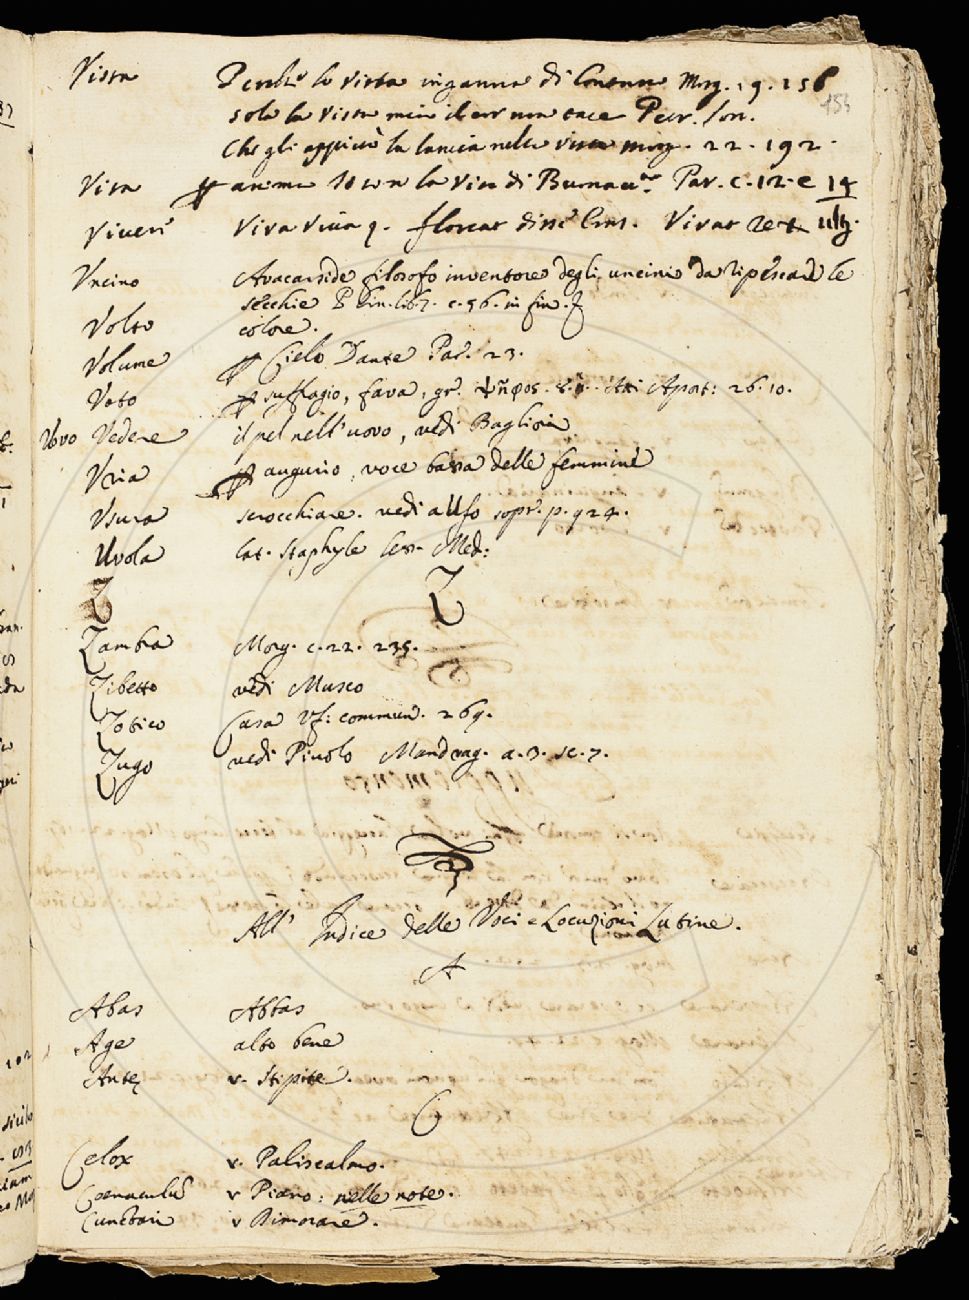 Vista Perche la vista inganna di Morg. 19. 156
154
sola la vista mia il cor non tace Petr. son.
Che gli appiccò la lancia nella vista morg. 22. 192.
Vita anima Io son la vita di Par. c. 12. e 14
Vivere Viva viva q. floreat disse Vivat
Uncino filosofo inventore degli uncini da ripescare le
secchie lib. 7. c. 56. in fin.
Volto colore.
Volume Cielo Dante Par. 23.
Voto suffragio, fava, gr. ψῆφος Atti Apost: 26. 10.
Uovo Vedere il pel nell'uovo, vedi Baglioni
Uria augurio, voce bassa delle femmine
Usura scrocchiare. vedi sopr. p. 924.
Uvola lat. Staphyle lex. Med:
Z Z
Zambra Morg. c. 22. 235.
Zibetto vedi Musco
Zotico Casa Uf: commun. 269.
Zugo vedi Piuolo Mandrag. a. 3. sc. 7.
All' Indice delle Voci e Locuzioni Latine.
A
Abas Abbas
Age alto bene
Antes v. Stipite.
C
Celox v. Paliscalmo.
Coenaculū v Piano: nelle note.
Cunctari v Dimorare.